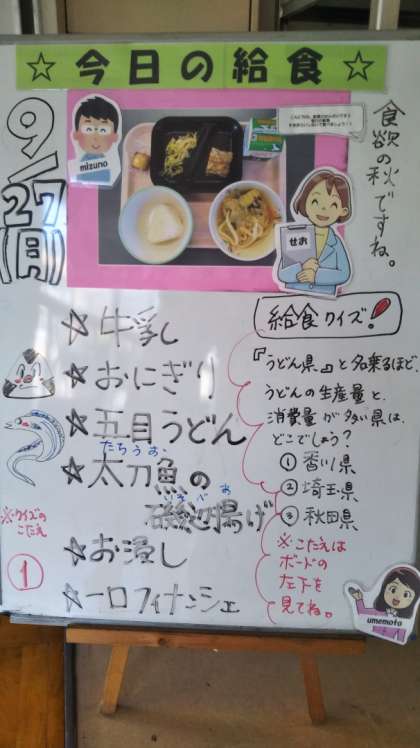 ☆今日の給食☆
9/27(月)
mizuno
せお
食欲の秋ですね。
☆牛乳
☆おにぎり
☆五目うどん
たちうお
☆太刀魚の
いそべあ
磯辺揚げ
☆お浸し
☆一口フィナンシェ
※クイズの
こたえ
①
給食クイズ!
『うどん県』と名乗るほど、
うどんの生産量と、
消費量が多い県は、
どこでしょう?
①香川県
②埼玉県
③秋田県
※こたえは
ボードの
左下を
見てね。
umemoto